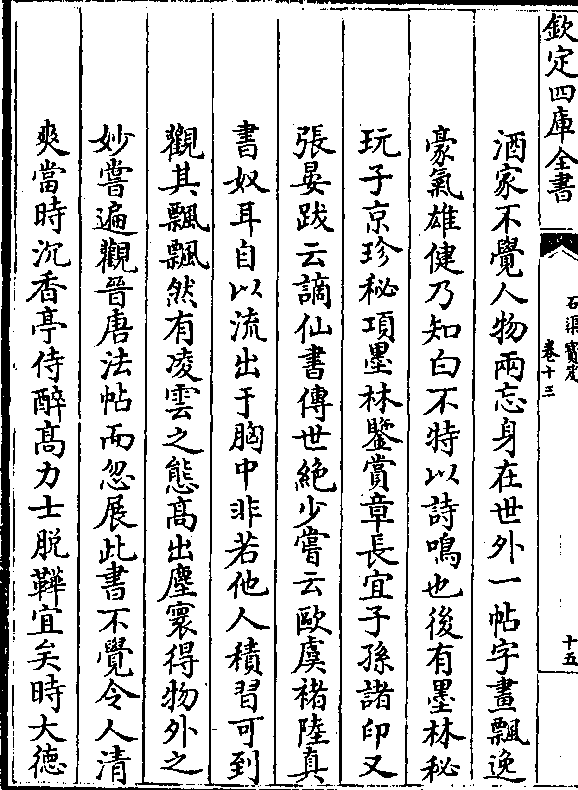 欽定四庫全書
石渠寶笈
卷十三
十五
酒家不覺人物兩忘身在世外一帖字畫飄逸
豪氣雄健乃知白不特以詩鳴也後有墨林秘
玩子京珍秘項墨林鑒賞章長宜子孫諸印又
張晏跋云謫仙書傳世絶少嘗云歐虞褚陸真
書奴耳自以流出于胸中非若他人積習可到
觀其飄飄然有凌雲之態髙出塵寰得物外之
妙嘗遍觀晉唐法帖而忽展此書不覺令人清
爽當時沉香亭侍醉髙力士脱鞾宜矣時大德